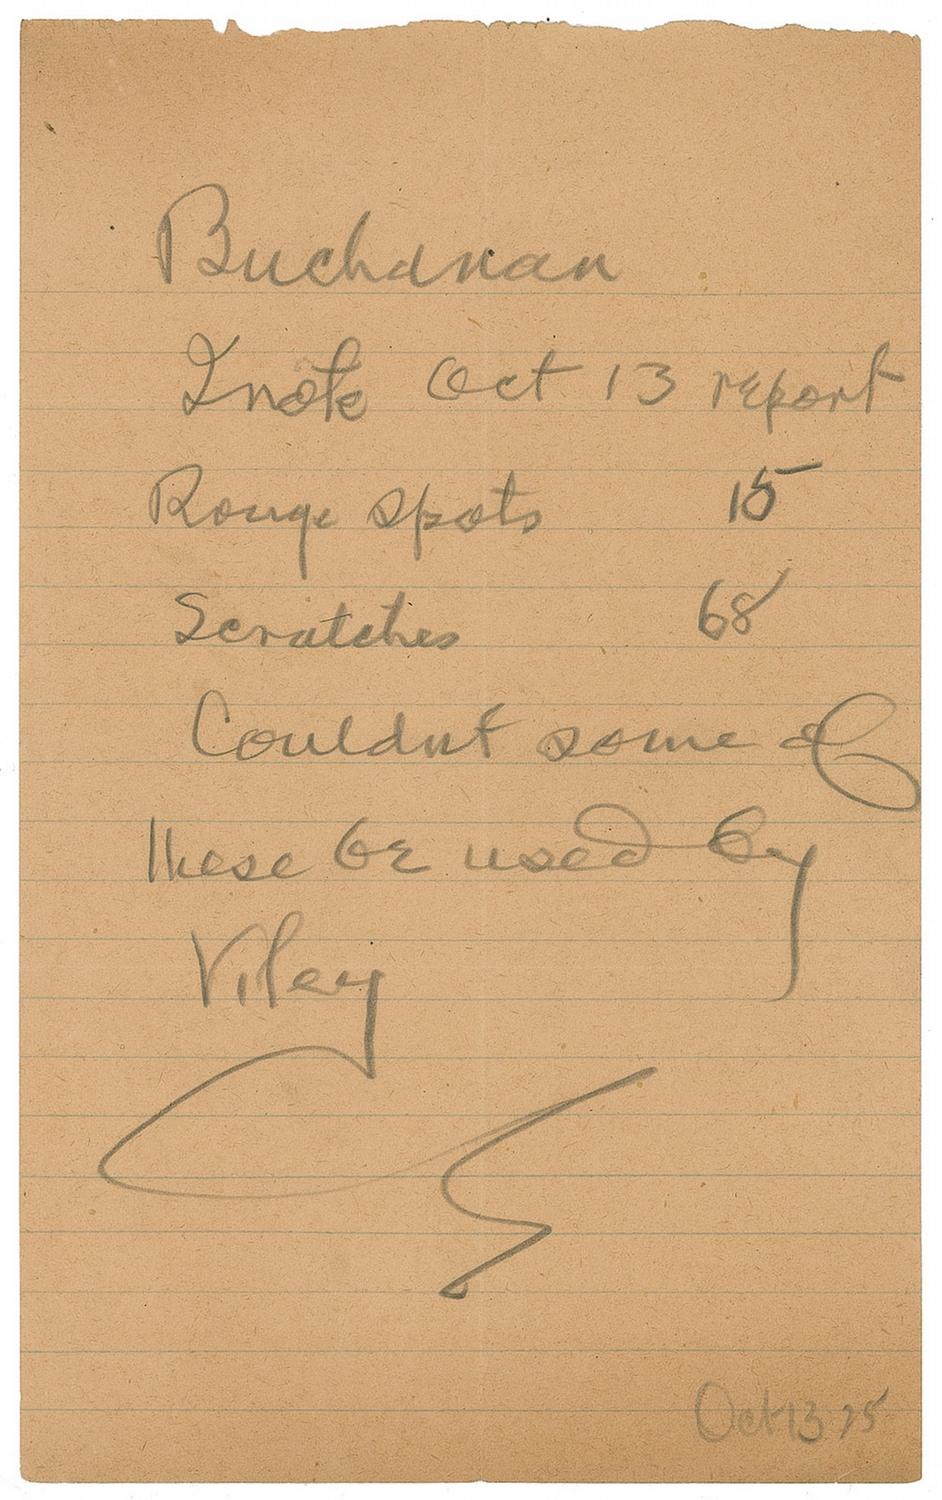 Buchanan
I note Oct 13 report
Rouge spots 15
Scratches 68
Couldnt some of
these be used by
Viley
Oct 13 25